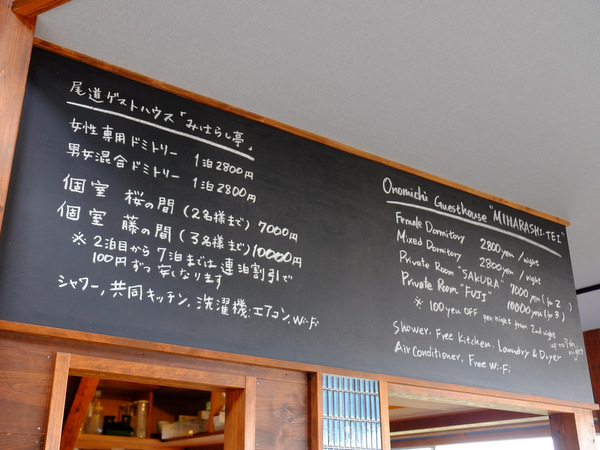 尾道ゲストハウス「みはらし亭」
女性専用ドミトリー 1泊2800円
男女混合ドミトリー 1泊2800円
個室 桜の間(2名様まで)7000円
個室 藤の間(3名様まで)10000円
※2泊目から7泊までは連泊割引で
100円ずつ安くなります
シャワー,共同キッチン,洗濯機,エアコン,Wi-Fi
Onomichi Guesthouse "MIHARASHI-TEI"
Female Dormitory 2800yen/night
Mixed Dormitory 2800yen/night
Private Room "SAKURA" 7000yen (for 2)
Private Room "FUJI" 10000yen (for 3)
※ 100yen OFF per night from 2nd night
up to 7th night
Shower, Free Kitchen, Laundry & Dryer
Air Conditioner, Free Wi-Fi